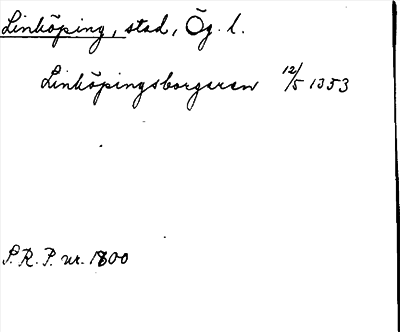 Linköping, stad, Ög. l.
Linköpingsborgaren 12/5 1353
S. R. P. nr. 1800